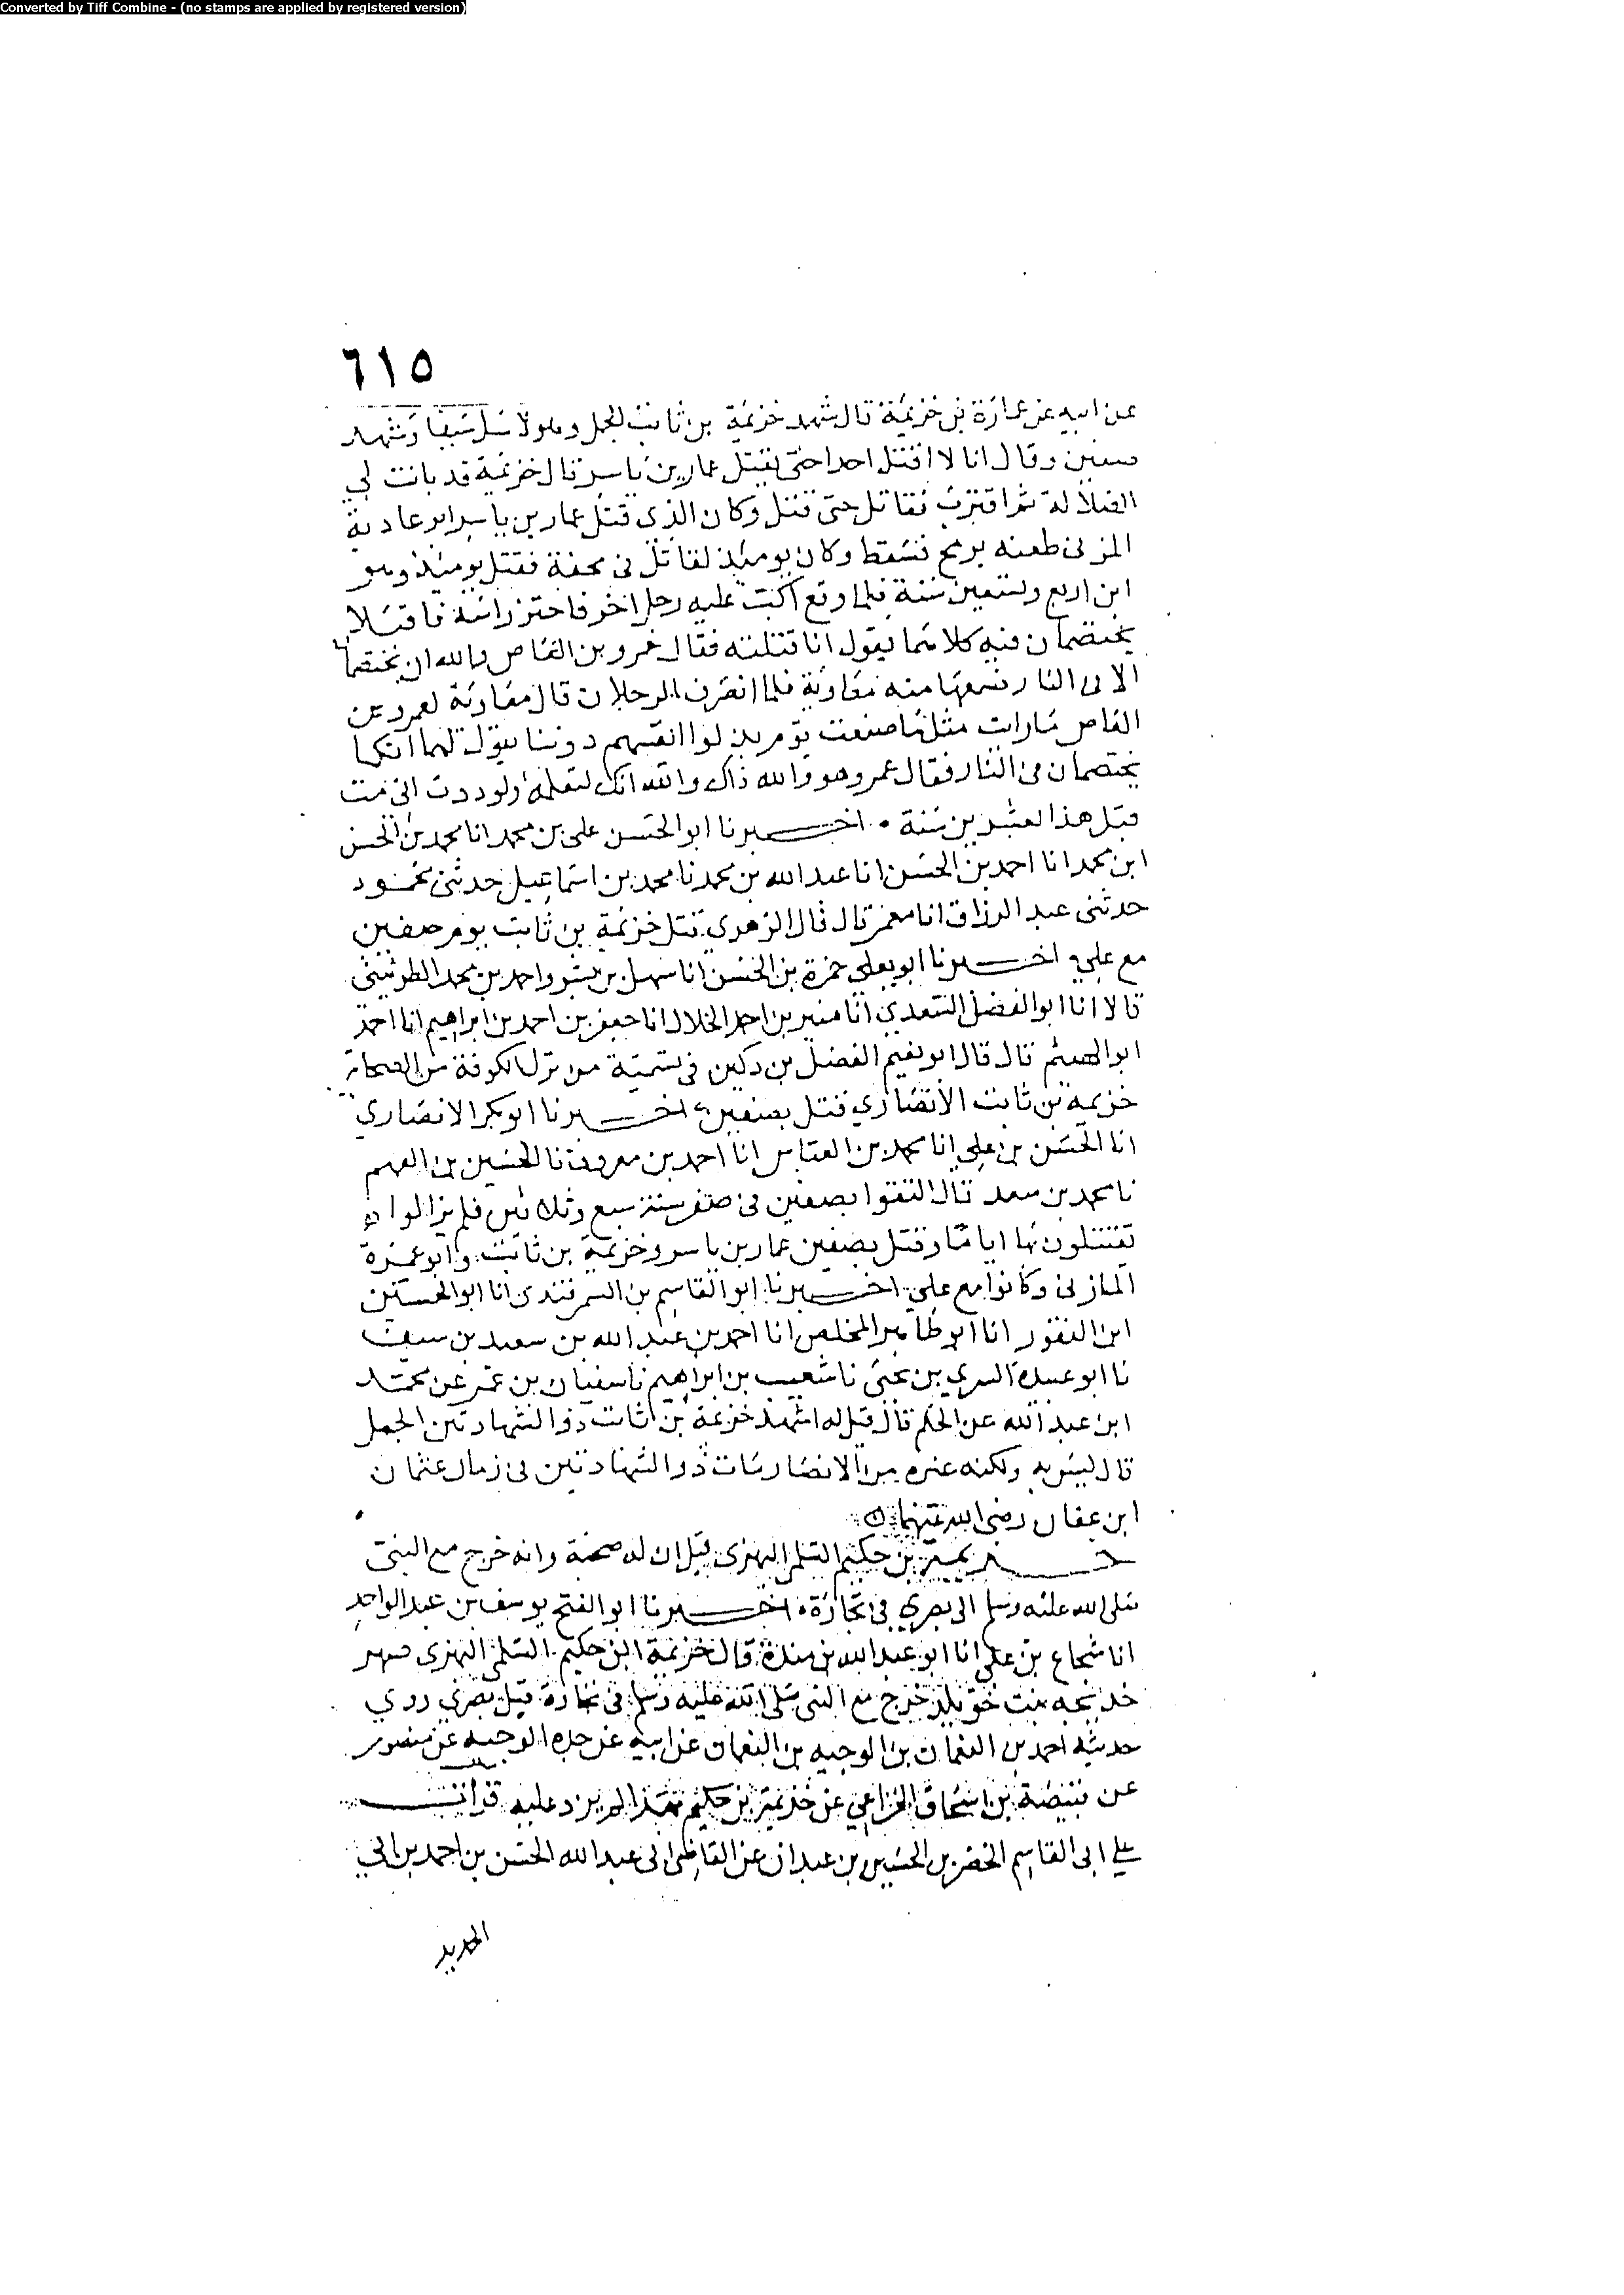 Converted by Tiff Combine - (no stamps are applied by registered version)
٦١٥
عن ابيه عن عمارة بن خزيمة قال شهد خزيمة بن ثابت الجمل وهو لا يسل سيفا وشهد
صفين وقال انا لا اقتل احدا حتى يقتل عمار بن ياسر قال خزيمة قد بانت لي
الضلالة ثم اقترب فقاتل حتى قتل وكان الذي قتل عمار بن ياسر ابو غادية
المزني طعنه برمح فسقط وكان يومئذ يقاتل في محفة فقتل يومئذ وهو
ابن اربع وتسعين سنة فلما وقع اكب عليه رجل اخر فاحتز راسه فاقبلا
يختصمان فيه كلاهما يقول انا قتلته فقال عمرو بن العاص والله ان يختصمان
الا في النار فسمعها منه معاوية فلما انصرف الرجلان قال معاوية لعمرو بن
العاص ما رايت مثل ما صنعت قوم بذلوا انفسهم دوننا تقول لهما انكما
تختصمان في النار فقال عمرو هو والله ذاك والله انك لتعلمه ولوددت اني مت
قبل هذا بعشرين سنة • اخبرنا ابو الحسن علي بن محمد انا محمد بن الحسن
ابن محمد انا احمد بن الحسين انا عبد الله بن محمد نا محمد بن اسماعيل حدثني محمود
حدثني عبد الرزاق انا معمر قال قال الزهري قتل خزيمة بن ثابت يوم صفين
مع علي اخبرنا ابو يعلى حمزة بن الحسن انا سهل بن بشر واحمد بن محمد الطريثيثي
قالا انا ابو الفضل السعدي انا منير بن احمد الخلال انا جعفر بن احمد بن ابراهيم انا احمد
ابو الهيثم قال قال ابو نعيم الفضل بن دكين في تسمية من نزل الكوفة من الصحابة
خزيمة بن ثابت الانصاري قتل بصفين اخبرنا ابو بكر الانصاري
انا الحسن بن علي انا محمد بن العباس انا احمد بن معروف نا الحسين بن الفهم
نا محمد بن سعد قال التقوا بصفين في صفر سنة سبع وثلاثين فلم يزالوا
يقتتلون بها اياما وقتل بصفين عمار بن ياسر وخزيمة بن ثابت وابو عمرة
المازني وكانوا مع علي اخبرنا ابو القاسم بن السمرقندي انا ابو الحسين
ابن النقور انا ابو طاهر المخلص انا احمد بن عبد الله بن سعيد بن سيف
نا ابو عبيدة السري بن يحيى نا شعيب بن ابراهيم نا سفيان بن عمر عن محمد
ابن عبد الله عن الحكم قال قيل له اشهد خزيمة بن ثابت ذو الشهادتين الجمل
قال ليس به ولكنه غيره من الانصار مات ذو الشهادتين في زمان عثمان
ابن عفان رضي الله عنهما
خزيمة بن حكيم السلمي البهزي قيل ان له صحبة وانه خرج مع النبي
صلى الله عليه وسلم الى بصرى في تجارة • اخبرنا ابو الفتح يوسف بن عبد الواحد
انا شجاع بن علي انا ابو عبد الله بن مندة قال خزيمة ابن حكيم السلمي البهزي صهر
خديجة بنت خويلد خرج مع النبي صلى الله عليه وسلم في تجارة قبل بصرى روى
حديثه احمد بن النعمان بن الوجيه بن النعمان عن ابيه عن جده الوجيه عن منصور
عن قبيصة بن اسحاق الخزاعي عن خزيمة بن حكيم بهذا لم يزد عليه قرات
علي ابي القاسم الخضر بن الحسين بن عبدان عن القاضي ابي عبد الله الحسن بن احمد بن ابي
الحديد